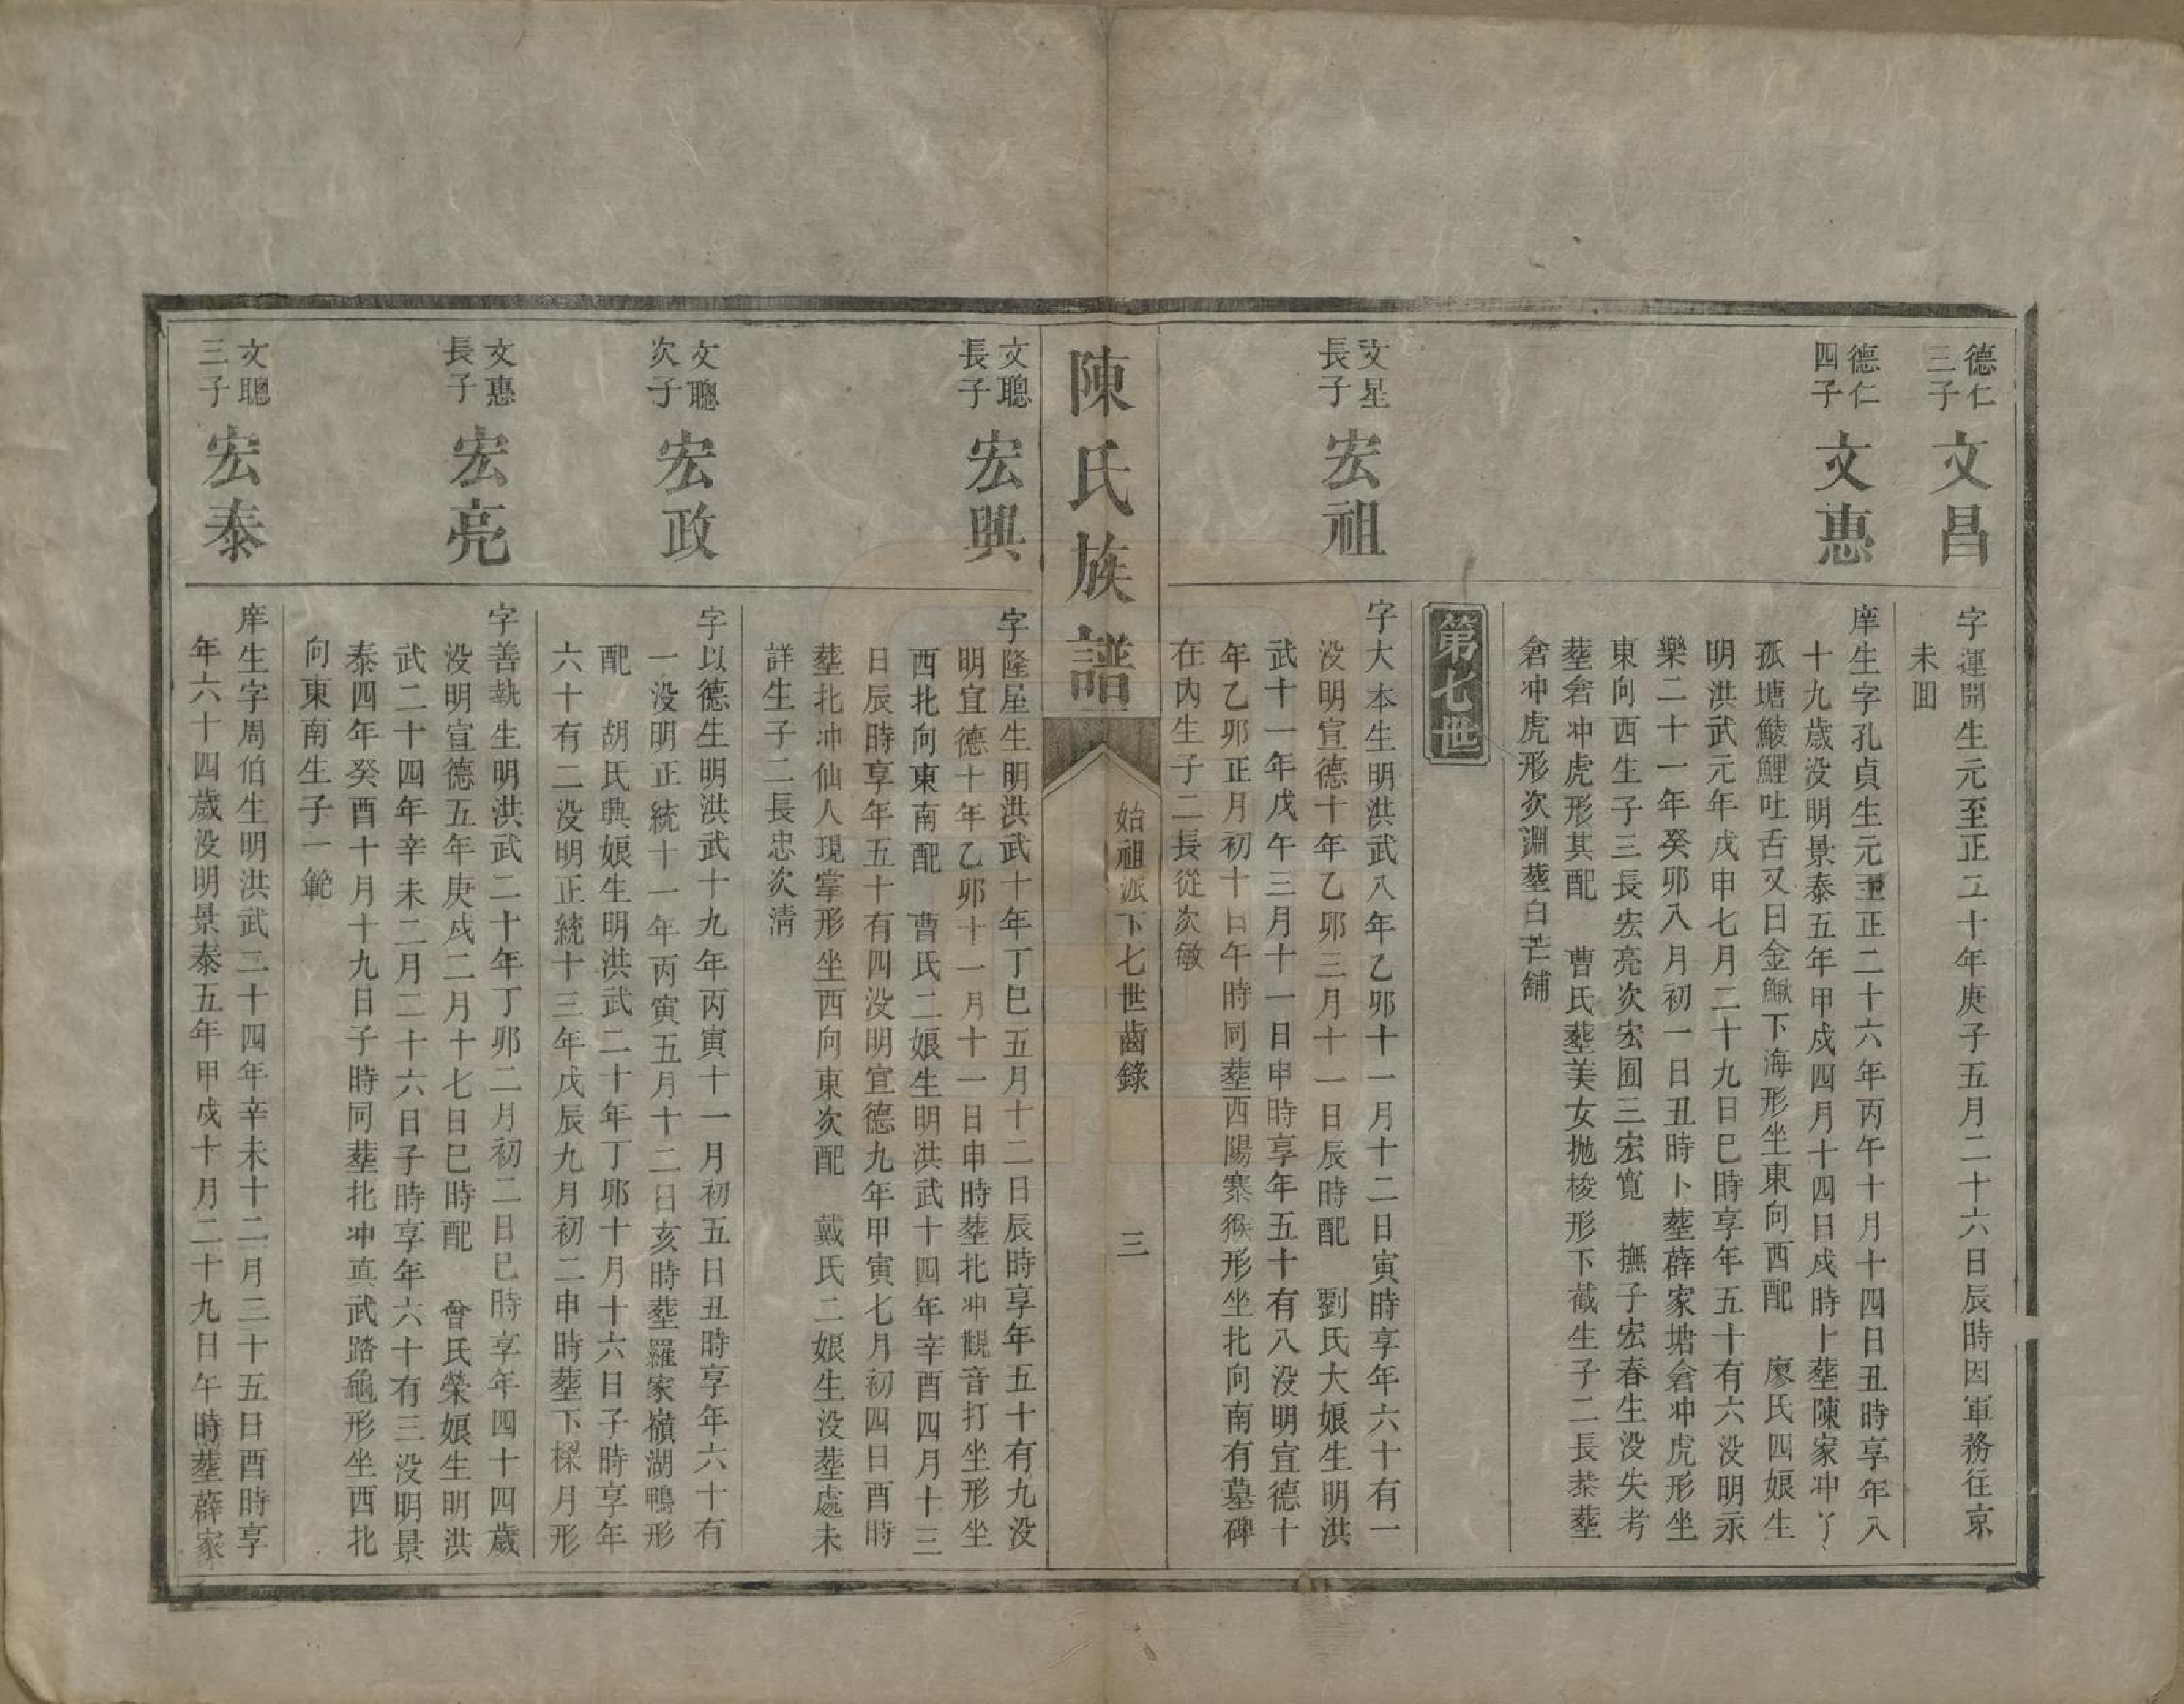 德仁三子
文昌
字運開生元至正二十年庚子五月二十六日辰時因軍務往京
未囬
德仁四子
文惠
庠生字孔貞生元至正二十六年丙午十月十四日丑時享年八
十九歲没明景泰五年甲戍四月十四日戍時卜塟陳家冲丫
孤塘鯪鯉吐舌又曰金鰍下海形坐東向西配　廖氏四娘生
明洪武元年戊申七月二十九日巳時享年五十有六没明永
樂二十一年癸卯入月初一日丑時卜塟薜家塘倉冲虎形坐
東向西生子三長宏亮次宏囿三宏寬　撫子宏春生没失考
塟倉冲虎形其配　曹氏塟美女抛梭形下截生子二長棻塟
倉冲虎形次淵塟白芒舖
第七世
文星長子
宏祖
字大本生明洪武八年乙卯十一月十二日寅時享年六十有一
没明宣德十年乙卯三月十一日辰時配　劉氏大娘生明洪
武十一年戊午三月十一日申時享年五十有八没明宣德十
年乙卯正月初十日午時同塟西陽寨猴形坐北向南有墓碑
在内生子二長從次敏
陳氏族譜
始祖派下七世齒錄
三
文聰長子
宏興
字隆星生明洪武十年丁巳五月十二日辰時享年五十有九没
明宣德十年乙卯十一月十一日申時塟北冲觀音打坐形坐
西北向東南配　曹氏二娘生明洪武十四年辛酉四月十三
日辰時享年五十有四没明宣德九年甲寅七月初四日酉時
塟北冲仙人現掌形坐西向東次配　戴氏二娘生没塟處未
詳生子二長忠次清
文聰次子
宏政
字以德生明洪武十九年丙寅十一月初五日丑時享年六十有
一没明正統十一年丙寅五月十二日亥時塟羅家嶺湖鴨形
配　胡氏興娘生明洪武二十年丁卯十月十六日子時享年
六十有二没明正統十三年戊辰九月初二申時塟下樑月形
文惠長子
宏亮
字善執生明洪武二十年丁卯二月初二日巳時享年四十四歲
没明宣德五年庚戍二月十七日巳時配　曾氏榮娘生明洪
武二十四年辛未二月二十六日子時享年六十有三没明景
泰四年癸酉十月十九日子時同塟北冲真武踏龜形坐西北
向東南生子一範
文聰三子
宏泰
庠生字周伯生明洪武二十四年辛未十二月三十五日酉時享
年六十四歲没明景泰五年甲戍十月二十九日午時塟薜家